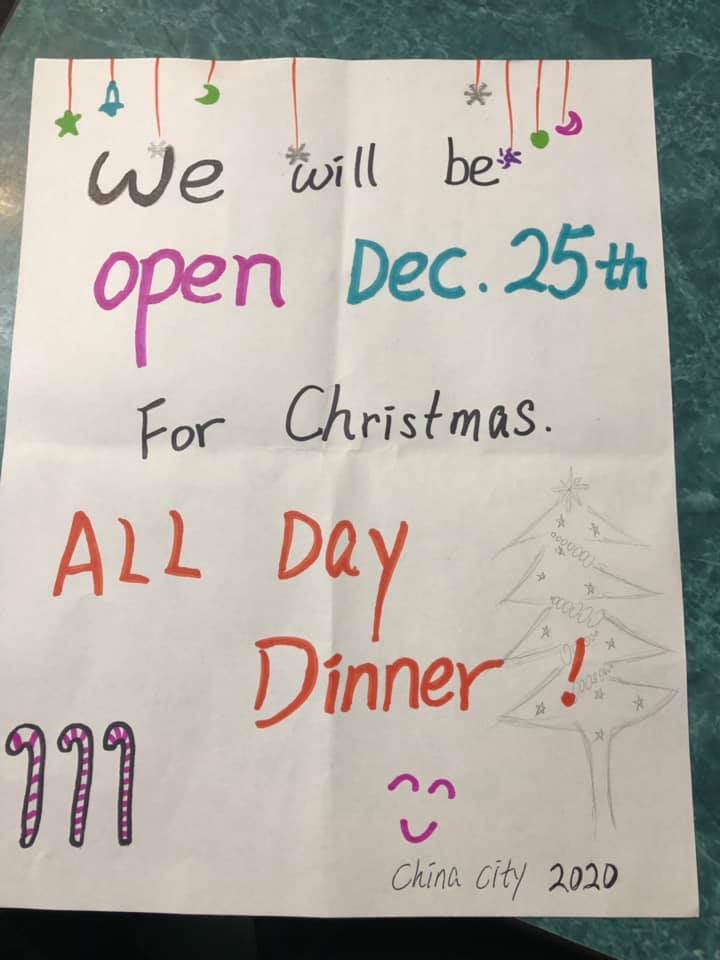 We will be
open Dec. 25th
For Christmas.
ALL Day
Dinner !
China City 2020